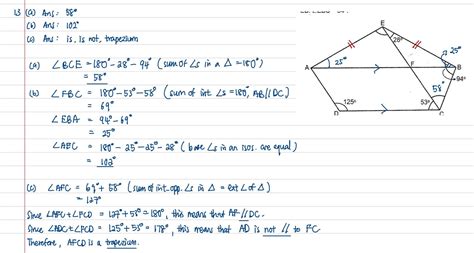 13 (a) Ans: 58°
(b) Ans: 102°
(c) Ans: is, is not, trapezium
(a) ∠BCE = 180° - 28° - 94° (sum of ∠s in a Δ = 180°)
= 58°
(b) ∠FBC = 180° - 53° - 58° (sum of int ∠s = 180°, AB//DC)
= 69°
∠EBA = 94° - 69°
= 25°
∠AEC = 180° - 25° - 25° - 28° (base ∠s in an isos. are equal)
= 102°
(c) ∠AFC = 69° + 58° (sum of int. opp. ∠s in Δ = ext ∠ of Δ)
= 127°
Since ∠AFC + ∠FCD = 127° + 53° = 180°, this means that AF // DC.
Since ∠ADC + ∠FCD = 125° + 53° = 178°, this means that AD is not // to FC
Therefore, AFCD is a trapezium.
E
28°
25°
A
25°
F
B
94°
58°
125°
53°
D
C